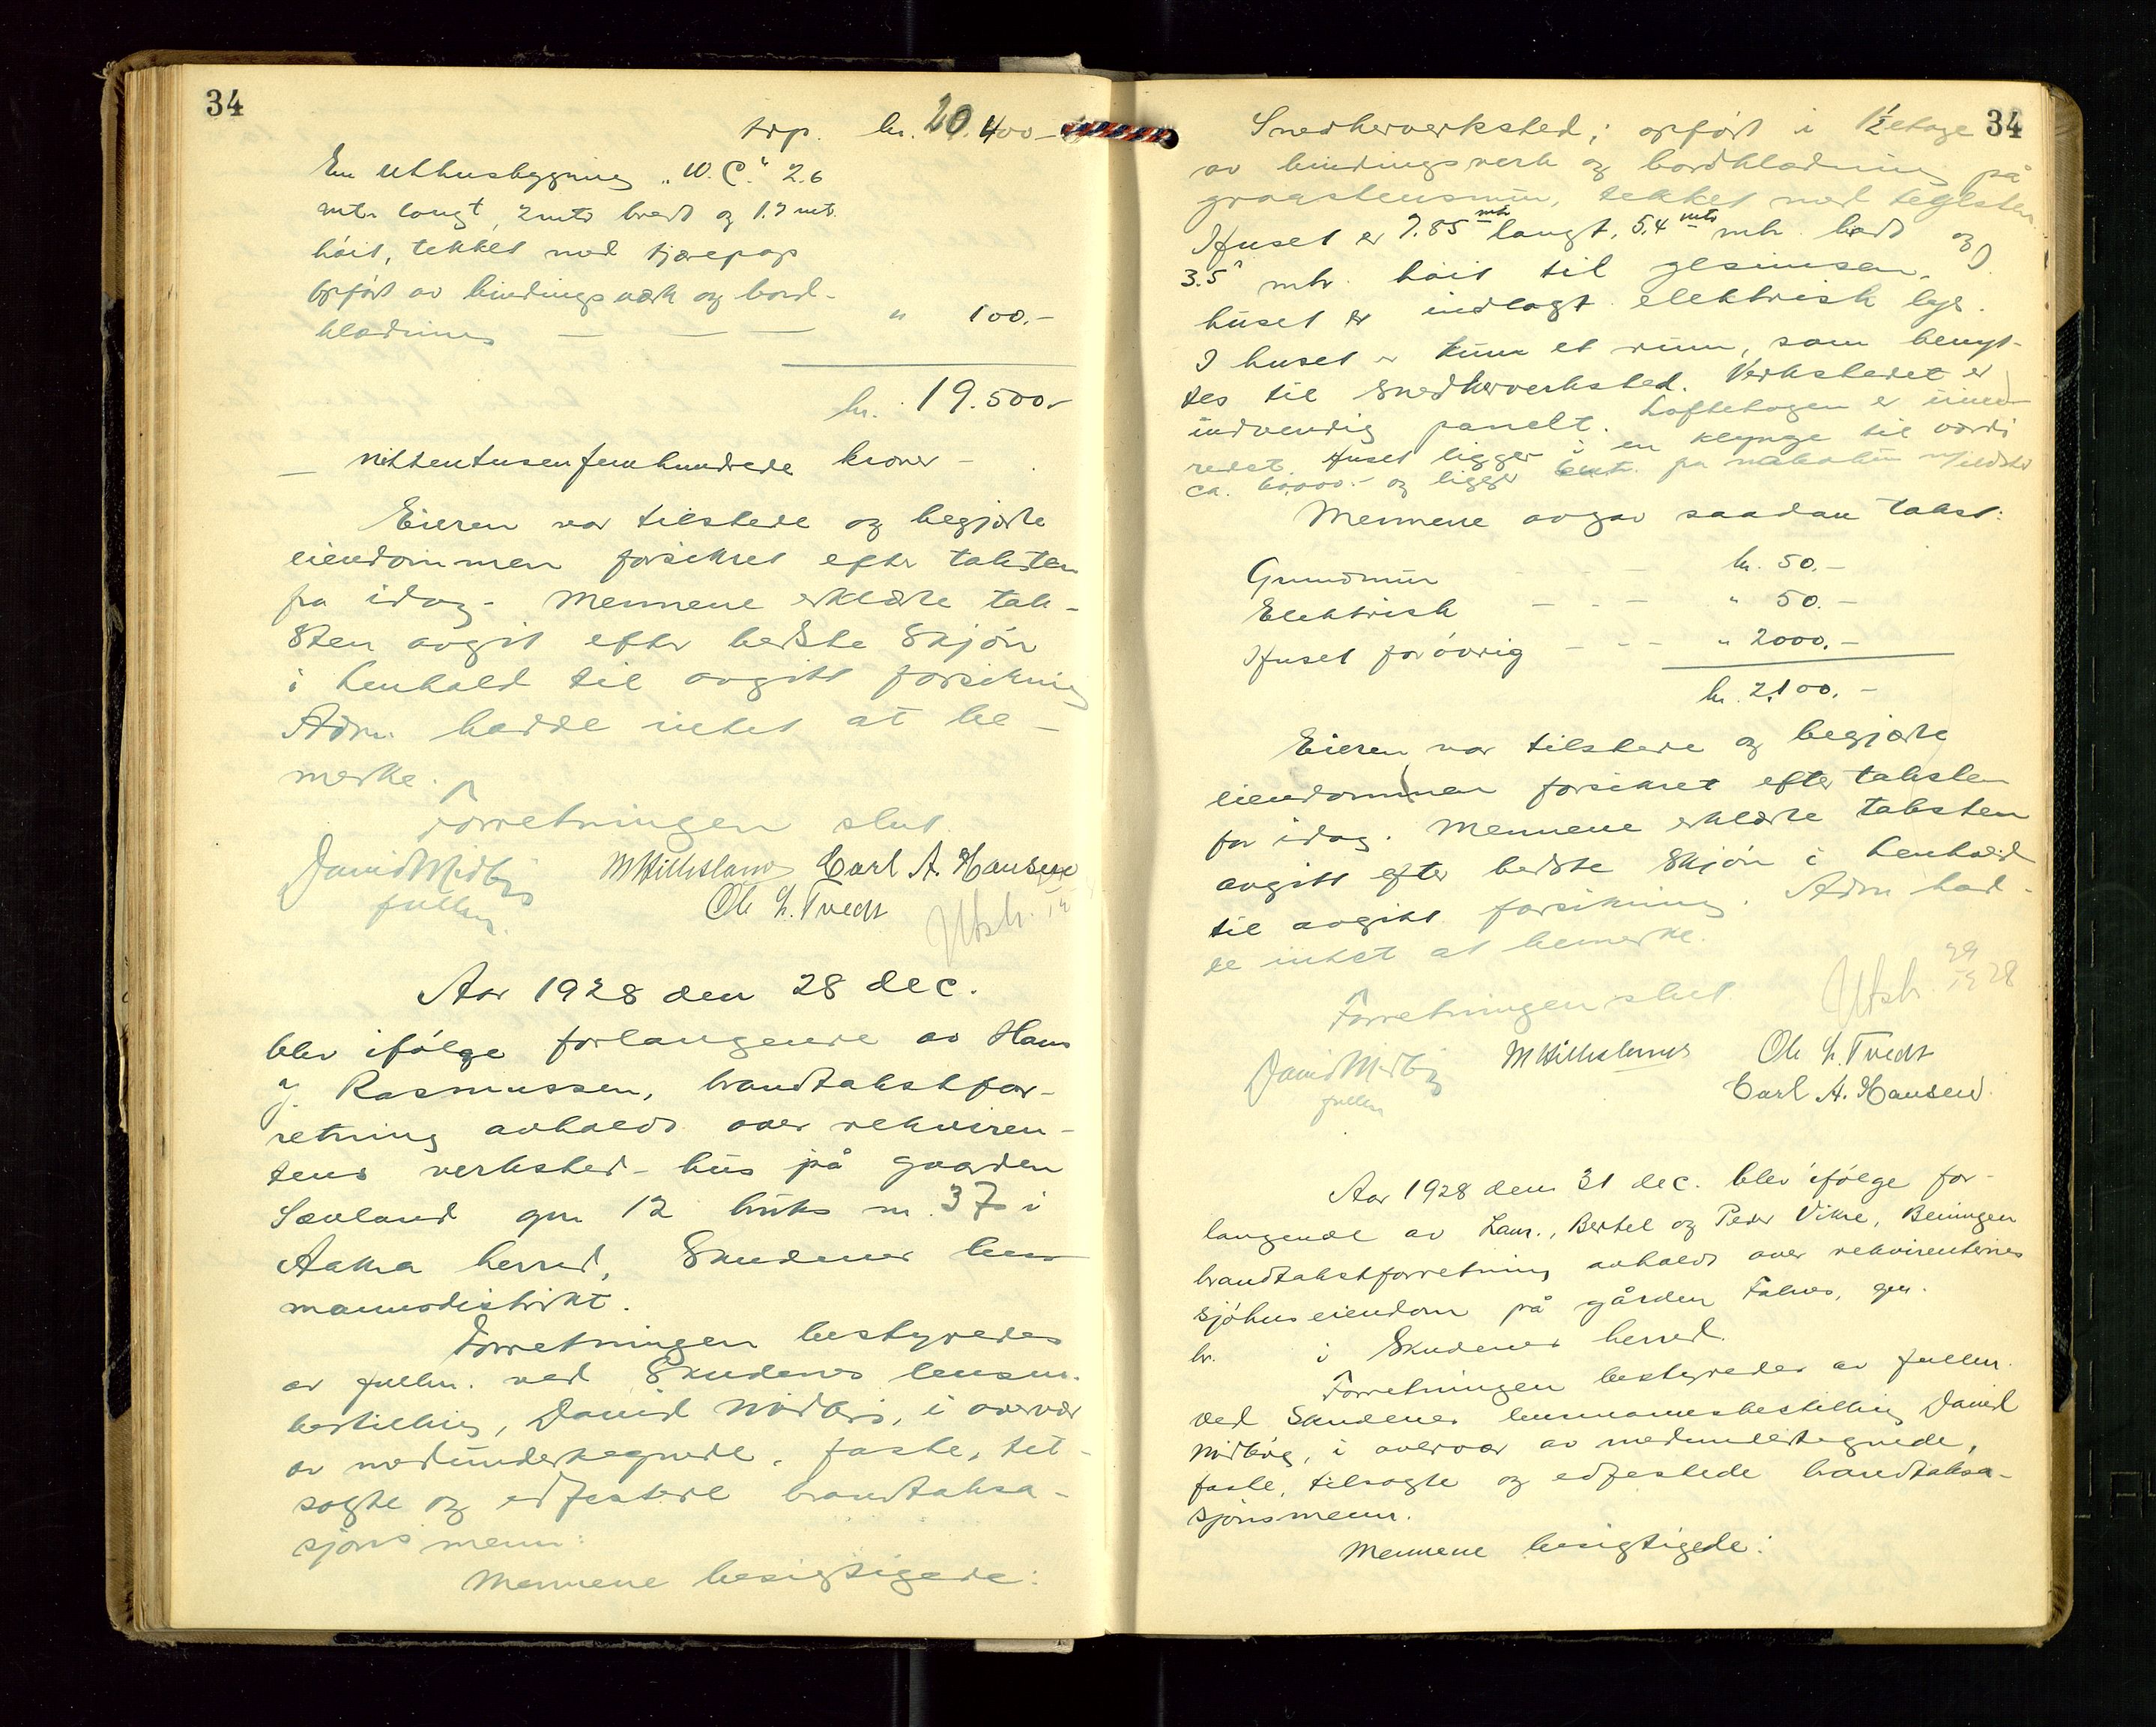 34
trp. kr. 20.400-
En uthusbygning "W.C." 2.6
mtr langt, 2 mtr bredt og 1.7 mtr.
höit, tekket med tjærepap
opfört av bindingsverk og bord-
klædning — — — " 100.-
kr. 19.500.-
— nittentusenfemhundrede kroner —
Eieren var tilstede og begjærte
eiendommen forsikret efter taksten
fra idag. Mennene erklærte tak-
sten avgit efter bedste skjön
i henhold til avgitt forsikring
Adm. hadde intet at be-
merke.
Forretningen slut.
David Midbög
fullm.
M Hillesland Carl A. Hansen
Ole L. Tvedt
Utskr.
Aar 1928 den 28 dec.
blev ifölge forlangende av Hans
J. Rasmussen, brandtakstfor-
retning avholdt over rekviren-
tens verksted-hus på gaarden
Sævland gnr 12 bruks nr. 37 i
Aakra herred, Skudenes lens
mannsdistrikt.
Forretningen bestyredes
av fullm. ved Skudenes lensm.
bestilling, David Midbög, i overvær
av medundertegnede, faste, til-
sagte og edfestede brandtaksa-
sjonsmenn:
Mennene besigtigede:
34
Snedkerverksted; opfört i 1½ etage
av bindingsverk og bordklædning på
graastensmur, tekket med teglsten
Huset er 7.85 mtr langt, 5.4 mtr mtr. bredt og
3.5 mtr. höit til gesimsen. I
huset er indlagt elektrisk lys.
I huset er kun et rum, som benyt-
tes til snedkerverksted. Verkstedet er
indvendig panelt. Loftetagen er uinn-
redet. Huset ligger i en klynge til værdi
ca. 60,000.- og ligger fra nabohus m/ildsted
Mennene avgav saadan takst:
Grundmur - - - kr. 50.-
Elektrisk - - - " 50.-
Huset forövrig - - - " 2000.-
kr. 2,100.-
Eieren var tilstede og begjærte
eiendommen forsikret efter taksten
fra idag. Mennene erklærte taksten
avgitt efter bedste skjön i henhold
til avgitt forsikring. Adm had-
de intet at bemerke.
Forretningen slut
Utskr. 29/12 28
David Midbög
fullm
M Hillesland Ole L. Tvedt
Carl A. Hansen.
Aar 1928 den 31 dec. blev ifölge for-
langende av Laur., Bertel og Peder Vikre, Beiningen
brandtakstforretning avholdt over rekvirentenes
sjöhuseiendom på gården Falnes, gnr.
br. i Skudenes herred.
Forretningen bestyredes av fullm.
ved Skudenes lensmannsbestilling David
Midbög, i overvær av medundertegnede,
faste, tilsagte og edfestede brandtaksa-
sjonsmenn.
Mennene besigtigede: